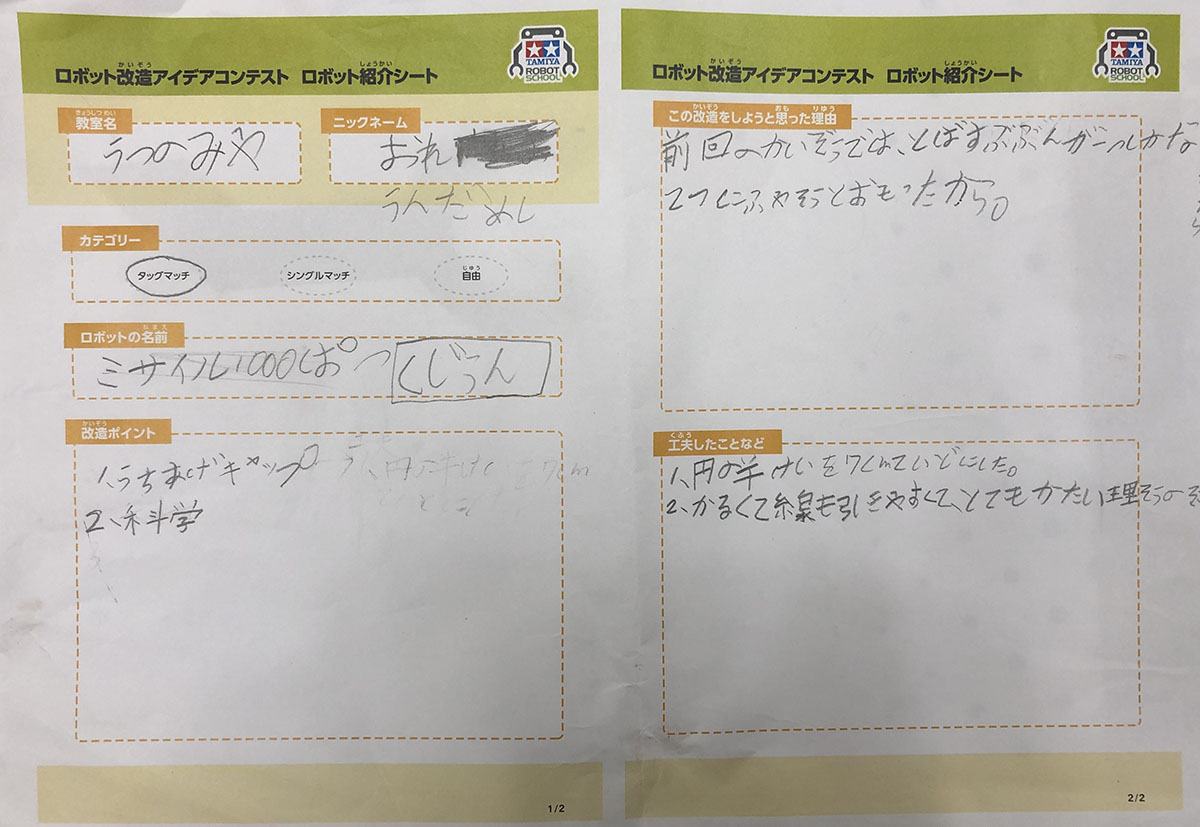 かいぞう
しょうかい
ロボット改造アイデアコンテスト ロボット紹介シート
TAMIYA
ROBOT
SCHOOL
きょうしつめい
教室名
うつのみや
ニックネーム
おれ
うんだめし
カテゴリー
タッグマッチ
シングルマッチ
じゆう
自由
なまえ
ロボットの名前
ミサイル1000ぱつ
くじうん
かいぞう
改造ポイント
1、うちあげキャップ
2、糸斗学
1/2
かいぞう
しょうかい
ロボット改造アイデアコンテスト ロボット紹介シート
TAMIYA
ROBOT
SCHOOL
かいぞう おも りゆう
この改造をしようと思った理由
前回のかいぞうでは、とばすぶぶんが一つしかな
2つにふやそうとおもったから。
くふう
工夫したことなど
1、円の半けいを7cmていどにした。
2、かるくて線も引きやすくて、とてもかたい理そうの
2/2